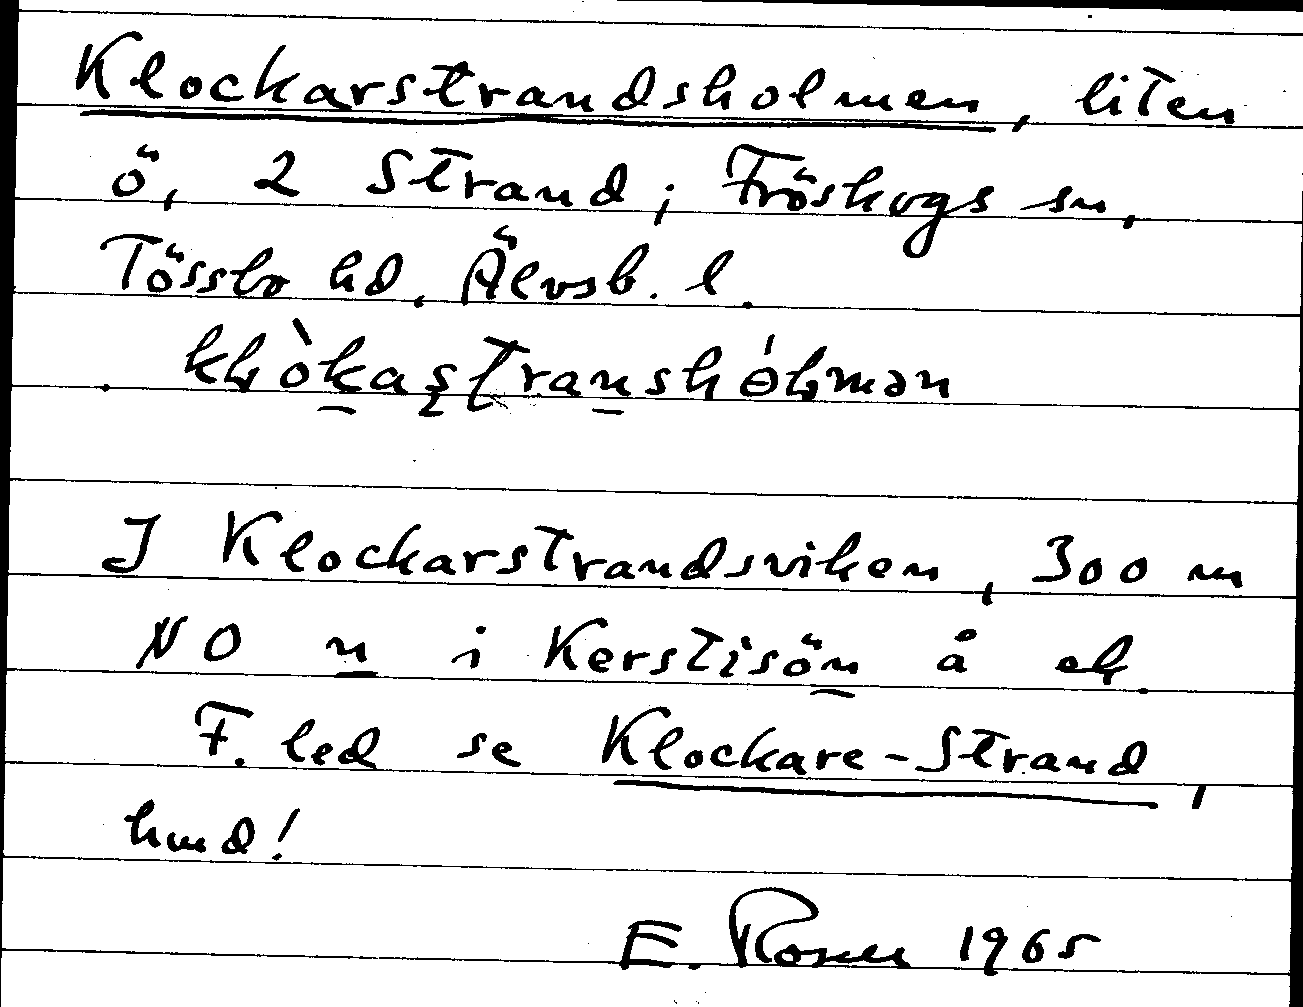 Klockarstrandsholmen, liten
ö, 2 Strand; Fröskogs sn,
Tössbo hd. Älvsb. l.
I Klockarstrandsviken, 300 m
NO n i Kerstisön å ek.
F. led se Klockare-Strand,
hmd!
E. Rosell 1965